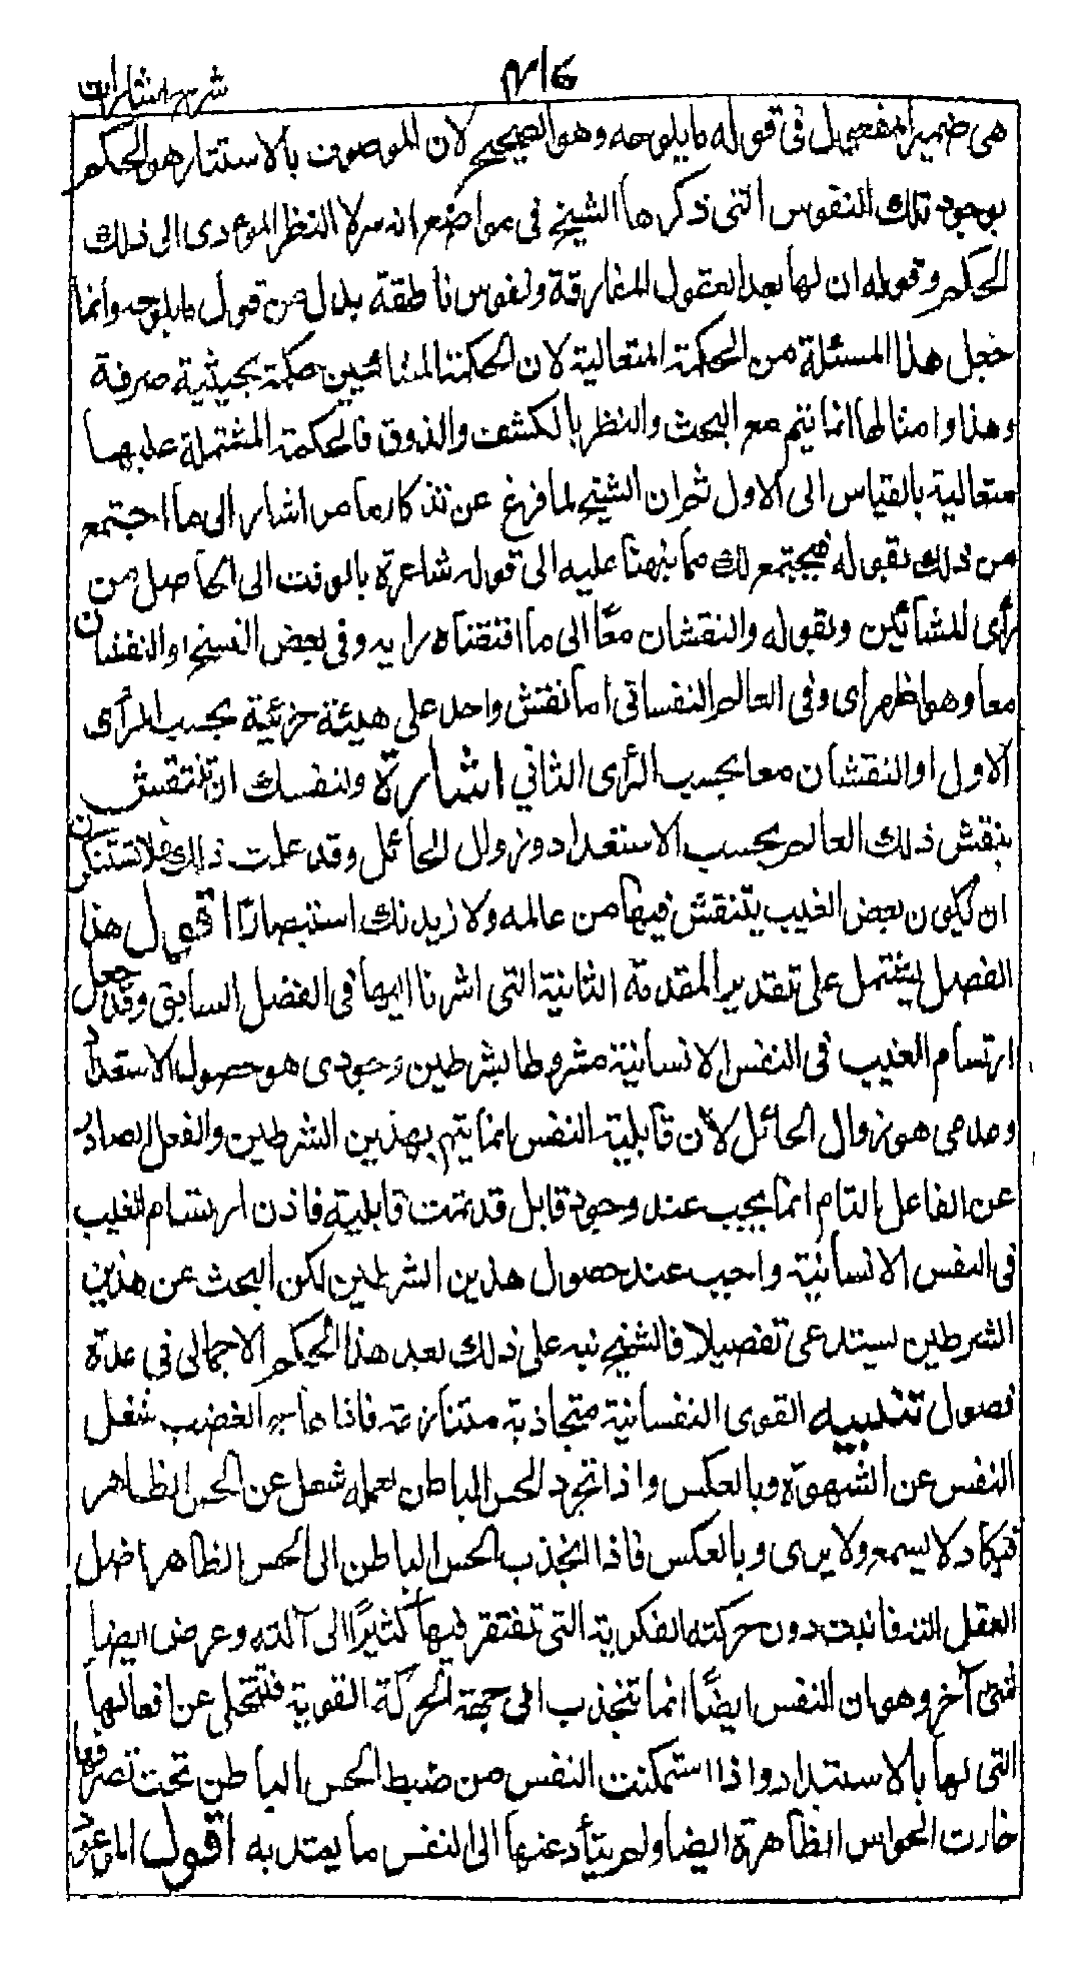 شرح اشارات
هى ضمير المفعول فى قوله ما يلوحه وهو الصحيح لان الموصوف بالاستتار هو الحكم
بوجود تلك النفوس التى ذكرها الشيخ فى مواضع انه سر لا النظر المؤدى الى ذلك
الحكم وقوله ان لها بعد العقول المفارقة نفوس ناطقة بدل من قوله ما يلوحه وانما
جعل هذا المسئلة من الحكمة المتعالية لان الحكمة المشائيين حكمة بحيثية صرفة
وهذا وامثالها انما يتم مع البحث والنظر بالكشف والذوق فالحكمة المشتملة عليها
متعالية بالقياس الى الاول ثم ان الشيخ لما فرغ عن تذكار ما مر اشار الى ما اجتمع
من ذلك بقوله فيجتمع لك مما نبهنا عليه الى قوله شاعرة بالوقت الى الحاصل من
رأى المشائين وبقوله والنقشان معًا الى ما اقتضاه رايه وفى بعض النسخ او النقشان
معا وهو اظهر اى وفى العالم النفسانى اما نقش واحد على هيئة جزئية بحسب الرأى
الاول او النقشان معا بحسب الرأى الثاني اشارة ولنفسك ان تنتقش
بنقش ذلك العالم بحسب الاستعداد وزوال الحائل وقد علمت ذلك فلا تستنكرن
ان يكون بعض الغيب ينتقش فيها من عالمه ولازيدنك استبصارًا اقول هذا
الفصل يشتمل على تقدير المقدمة الثانية التى اشرنا اليها فى الفصل السابق وقد جعل
ارتسام الغيب فى النفس الانسانية مشروطا بشرطين وجودى هو حصول الاستعداد
وعدمى هو زوال الحائل لأن قابلية النفس انما يتم بهذين الشرطين والفعل الصادر
عن الفاعل التام انما يجب عند وجود قابل قد تمت قابليته فاذن ارتسام الغيب
فى النفس الانسانية واجب عند حصول هذين الشرطين لكن البحث عن هذين
الشرطين يستدعى تفصيلا فالشيخ نبه على ذلك بعد هذا الحكم الاجمالى فى عدة
فصول تنبيه القوى النفسانية متجاذبة متنازعة فاذا هاج الغضب شغل
النفس عن الشهوة وبالعكس واذا تجرد الحس الباطن لعمله شغل عن الحس الظاهر
فيكاد لا يسمع ولا يرى وبالعكس فاذا انجذب الحس الباطن الى الحس الظاهر اضل
العقل الته فانبت دون حركته الفكرية التى تفتقر فيها كثيرًا الى آلته وعرض ايضا
شئ آخر وهو ان النفس ايضًا انما تنجذب الى جهة الحركة القوية فتتخلى عن افعالها
التى لها بالاستبداد واذا استمكنت النفس من ضبط الحس الباطن تحت تصرفها
خارت الحواس الظاهرة ايضا ولم يتأد عنها الى النفس ما يعتد به اقول الموعود